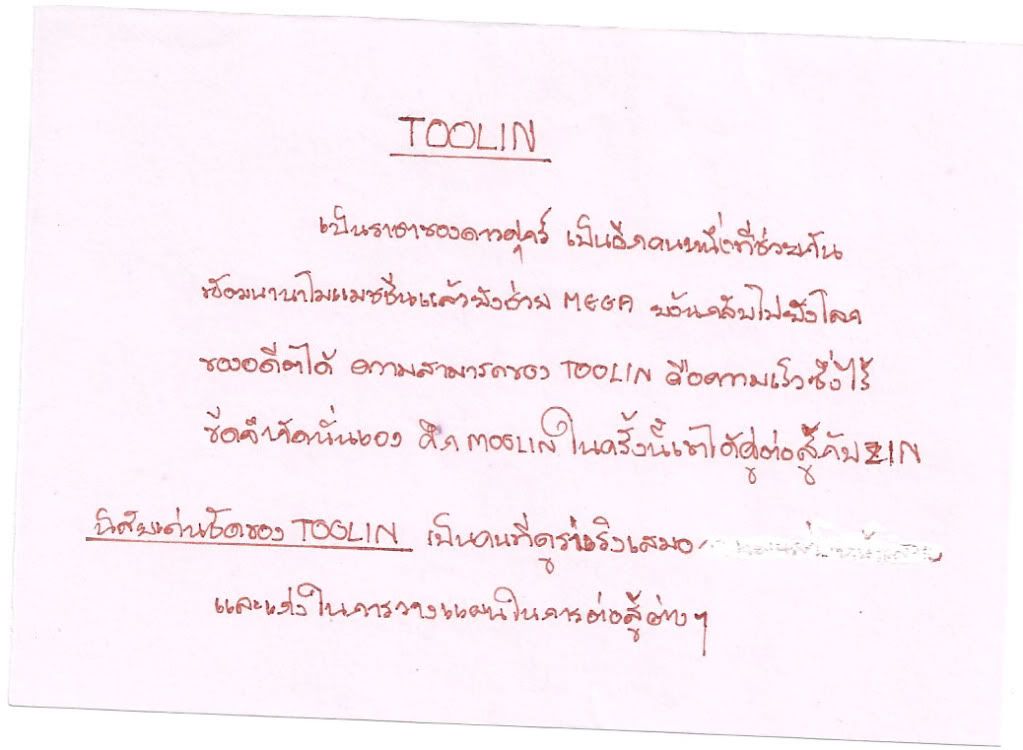 TOOLIN
เป็นราชาของดาวศุกร์ เป็นอีกคนหนึ่งที่ช่วยกัน
ซ่อมนาฬาไมแมชชีนแล้วยังช่วย MEGA ย้อนกลับไปยังโลก
ของอดีตได้ ความสามารถของ TOOLIN คือความเร็วซึ่งไร้
ขีดจำกัดนั่นเอง ศึก MOSLIN ในครั้งนี้เขาได้คู่ต่อสู้กับ ZIN
นิสัยเด่นชัดของ TOOLIN เป็นคนที่ดูร่าเริงเสมอ
และเก่งในการวางแผนในการต่อสู้ต่างๆ